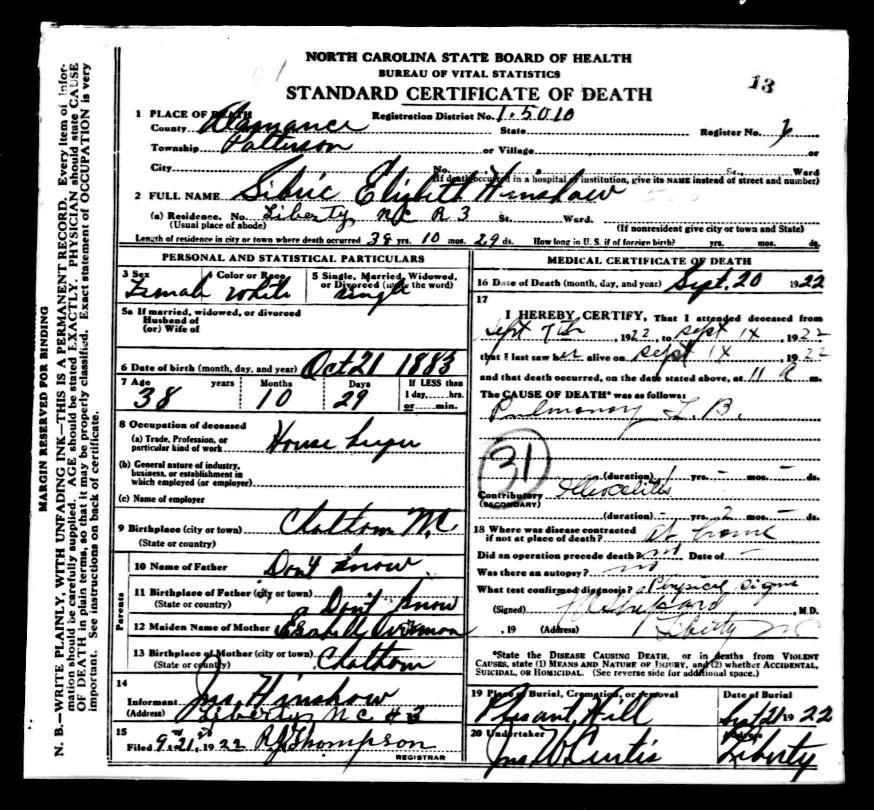 NORTH CAROLINA STATE BOARD OF HEALTH
BUREAU OF VITAL STATISTICS
STANDARD CERTIFICATE OF DEATH
13
1 PLACE OF DEATH
Registration District No. 1.5010
County Alamance State Register No. 6
Township Patterson or Village or
City No. St., Ward
(If death occurred in a hospital or institution, give its NAME instead of street and number)
2 FULL NAME Sibrie Elizbeth Hinshaw
(a) Residence. No. Liberty N.C. R 3 St. Ward.
(Usual place of abode) (If nonresident give city or town and State)
Length of residence in city or town where death occurred 38 yrs. 10 mos. 29 ds. How long in U.S. if of foreign birth? yrs. mos. ds.
PERSONAL AND STATISTICAL PARTICULARS
3 Sex 4 Color or Race 5 Single, Married, Widowed, or Divorced (write the word)
Female white single
5a If married, widowed, or divorced
Husband of
(or) Wife of
6 Date of birth (month, day, and year) Oct 21 1883
7 Age years Months Days If LESS than
1 day, hrs.
or min.
38 10 29
8 Occupation of deceased
(a) Trade, Profession, or
particular kind of work House keeper
(b) General nature of industry,
business, or establishment in
which employed (or employer)
(c) Name of employer
9 Birthplace (city or town) Chathom N.C
(State or country)
Parents
10 Name of Father Don't know
11 Birthplace of Father (city or town)
(State or country) Don't know
12 Maiden Name of Mother
13 Birthplace of Mother (city or town)
(State or country) Chathom
14
Informant Jns Hinshow
(Address) Liberty N C # 3
15
Filed 9-21, 1922 R J Thompson
REGISTRAR
MEDICAL CERTIFICATE OF DEATH
16 Date of Death (month, day, and year) Sept. 20 1922
17
I HEREBY CERTIFY, That I attended deceased from
Sept 7th, 1922, to Sept 1x, 1922
that I last saw her alive on Sept 1x, 1922
and that death occurred, on the date stated above, at 11 a m.
The CAUSE OF DEATH* was as follows:
Pulmonary T. B.
31
(duration) 1 yrs. - mos. - ds.
Contributory
(SECONDARY)
(duration) - yrs. 2 mos. - ds.
18 Where was disease contracted
if not at place of death? At home
Did an operation precede death? no Date of -
Was there an autopsy? no
What test confirmed diagnosis? Physical signs
(Signed) , M.D.
, 19 (Address) Liberty N C
*State the DISEASE CAUSING DEATH, or in deaths from VIOLENT
CAUSES, state (1) MEANS AND NATURE OF INJURY, and (2) whether ACCIDENTAL,
SUICIDAL, OR HOMICIDAL. (See reverse side for additional space.)
19 Place of Burial, Cremation, or removal Date of Burial
Plesant Hill Sept 21 1922
20 Undertaker
Jns. W Curtis Liberty
MARGIN RESERVED FOR BINDING
N. B.—WRITE PLAINLY, WITH UNFADING INK—THIS IS A PERMANENT RECORD. Every item of infor-
mation should be carefully supplied. AGE should be stated EXACTLY. PHYSICIAN should state CAUSE
OF DEATH in plain terms, so that it may be properly classified. Exact statement of OCCUPATION is very
important. See instructions on back of certificate.